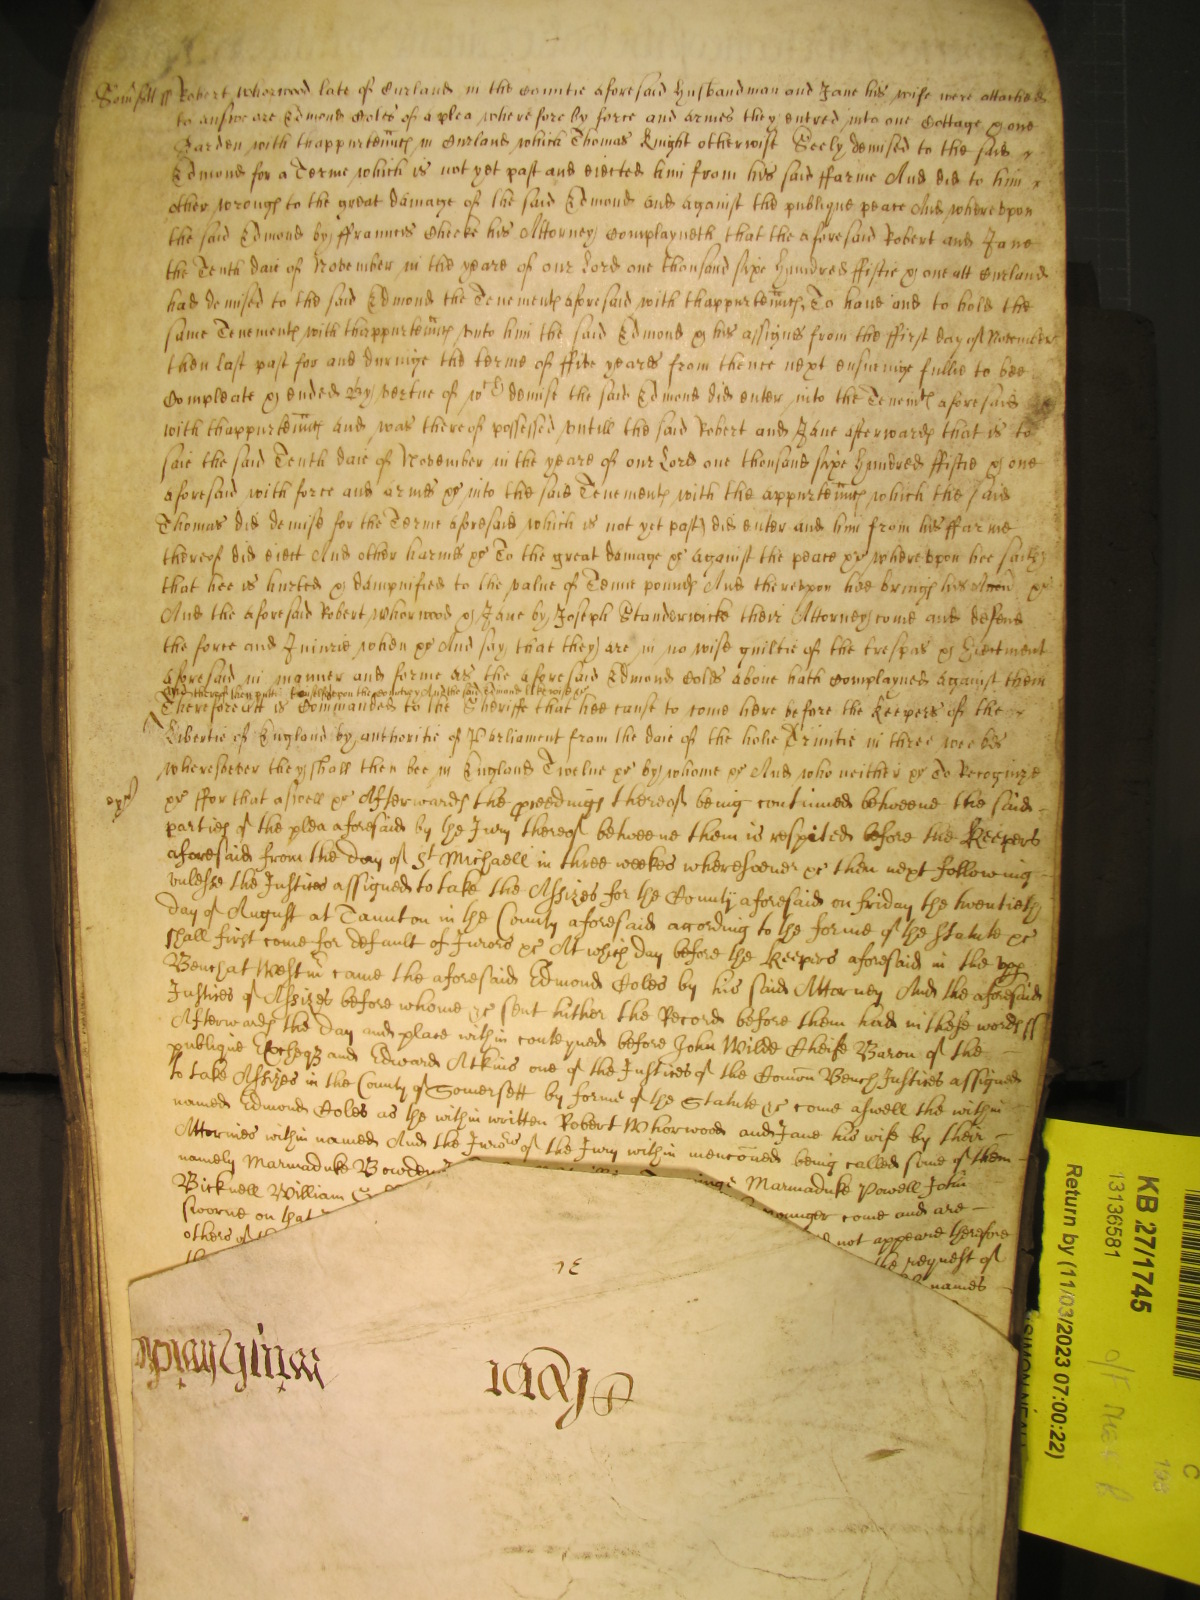 Som̃sett ss Robert Whorwood late of Curland in the Countie aforesaid husbandman and Jane his wife were attached
to answeare Edmond Coles of a plea wherefore by force and armes they entred into one Cottage & one
Garden with thappurteñncꝭ in Curland which Thomas Knight otherwise Seely demised to the said
Edmond for a Terme which is not yet past and eiected him from his said ffarme And did to him
other wrongꝭ to the great damage of the said Edmond and against the publique peace And whereupon
the said Edmond by ffrancis Cheeke his Attorney Complayneth that the aforesaid Robert and Jane
the Tenth daie of November in the yeare of our Lord one thousand sixe hundred ffiftie & one att Curland
had demised to the said Edmond the Tenementꝭ aforesaid with thappurteñncꝭ To haue and to hold the
same Tenementꝭ with thappurteñncꝭ vnto him the said Edmond & his assignes from the ffirst day of November
then last past for and dureinge the terme of ffive yeares from thence next ensuinge fullie to bee
Compleate & ended By vertue of wch demise the said Edmond did enter into the Tenemtꝭ aforesaid
with thappurteñncꝭ and was thereof possessed vntill the said Robert and Jane afterwardꝭ that is to
saie the said Tenth daie of November in the yeare of our Lord one thousand sixe hundred ffiftie & one
aforesaid with force and armes &c into the said Tenementꝭ with the appurteñncꝭ which the said
Thomas did demise for the Terme aforesaid which is not yet past did enter and him from his ffarme
thereof did eiect And other harmes &c To the great damage &c against the peace &c whereupon hee saith
that hee is hurted & dampnified to the value of Tenne poundꝭ And thereupon hee bringꝭ his &c
And the aforesaid Robert Whorwood & Jane by Joseph Standerwicke their Attorney come and defend
the force and Iniurie when &c And say that they are in no wise guiltie of the trespas & Eiectment
aforesaid in manner and forme as the aforesaid Edmond Coles above hath complayned against them
And thereof they putt themselves upon the countrey And the said Edmond likewise &c
Therefore itt is Commanded to the Sheriffe that hee cause to come here before the Keepers of the
Libertie of England by authoritie of Parliament from the daie of the holie Trinitie in three weekes
wheresoever they shall then bee in England Twelue &c by whome &c And who neither &c To Recognize
&c ffor that aswell &c Afterwardꝭ the ꝓceedingꝭ thereof being continued betweene the said
parties of the plea aforesaid by the Jury thereof betweene them is respited before the Keepers
aforesaid from the day of St Michaell in three weekes wheresoever &c then next following
vnlesse the Justices assigned to take the Assizes for the County aforesaid on friday the twentieth
day of August at Taunton in the County aforesaid according to the forme of the statute &c
shall first come for default of Jurors &c At which day before the Keepers aforesaid in the vpp
Bench at Westm̃ came the aforesaid Edmond Coles by his said Attorney And the aforesaid
Justices of Assizes before whome &c sent hither the Record before them had in these words ss
Afterwardꝭ the day and place within conteyned before John Wilde Cheife Baron of the
publique Excheqꝫ and Edward Atkins one of the Justices of the Com̃on Bench Justices assigned
to take Assizes in the County of Somersett by forme of the Statute &c come aswell the within
named Edmond Coles as the within written Robert Whorwood and Jane his wife by their
Attornies within named And the Jurors of the Jury within menc̃oned being called some of them
namely Marmaduke Bowden Marmaduke Powell John
Bicknell William
younger come and are
sworne on that
not appeare therefore
others of
the request of
names
KB 27/1745
13136581
Return by (11/03/2023 07:00:22)